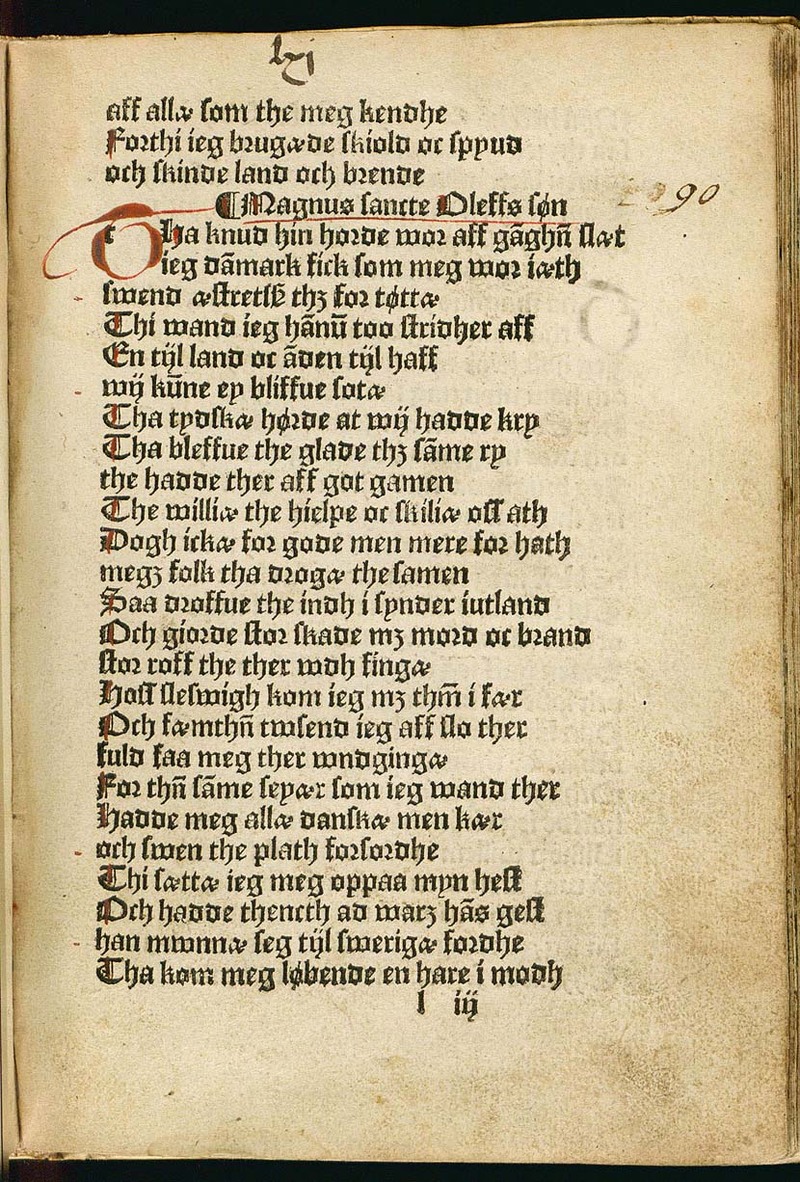 lxj
aff allæ som the meg kendhe
Forthi ieg brugæde skiold oc spyud
och skinde land och brende
¶Magnus sancte Oleffs søn
90
THa knud hin horde wor aff gāghn̄ slæt
ieg dāmark fick som meg wor iæth
swend æstretsꝭ thꝫ for tøttæ
Thi wand ieg hānū too stridher aff
En tijl land oc āden tijl haff
wij kūne ey bliffue sotæ
Tha tydskæ hørde at wij hadde kry
Tha bleffue the glade thꝫ sāme ry
the hadde ther aff got gamen
The williæ the hielpe oc skiliæ oss ath
Dogh ickæ for gode men mere for hath
megꝫ folk tha drogæ the samen
Saa droffue the indh i synder iutland
Och giorde stor skade mꝫ mord oc brand
stor roff the ther wdh fingæ
Hoss sleswigh kom ieg mꝫ thm̄ i fær
Och fæmthn̄ twsend ieg aff slo ther
fuld faa meg ther wndgingæ
For thn̄ sāme seyær som ieg wand ther
Hadde meg allæ danskæ men kær
och swen the plath forsordhe
Thi sættæ ieg meg oppaa myn hest
Och hadde thencth ad warꝫ hās gest
han mwnnæ seg tijl swerigæ fordhe
Tha kom meg løbende en hare i modh
l iij